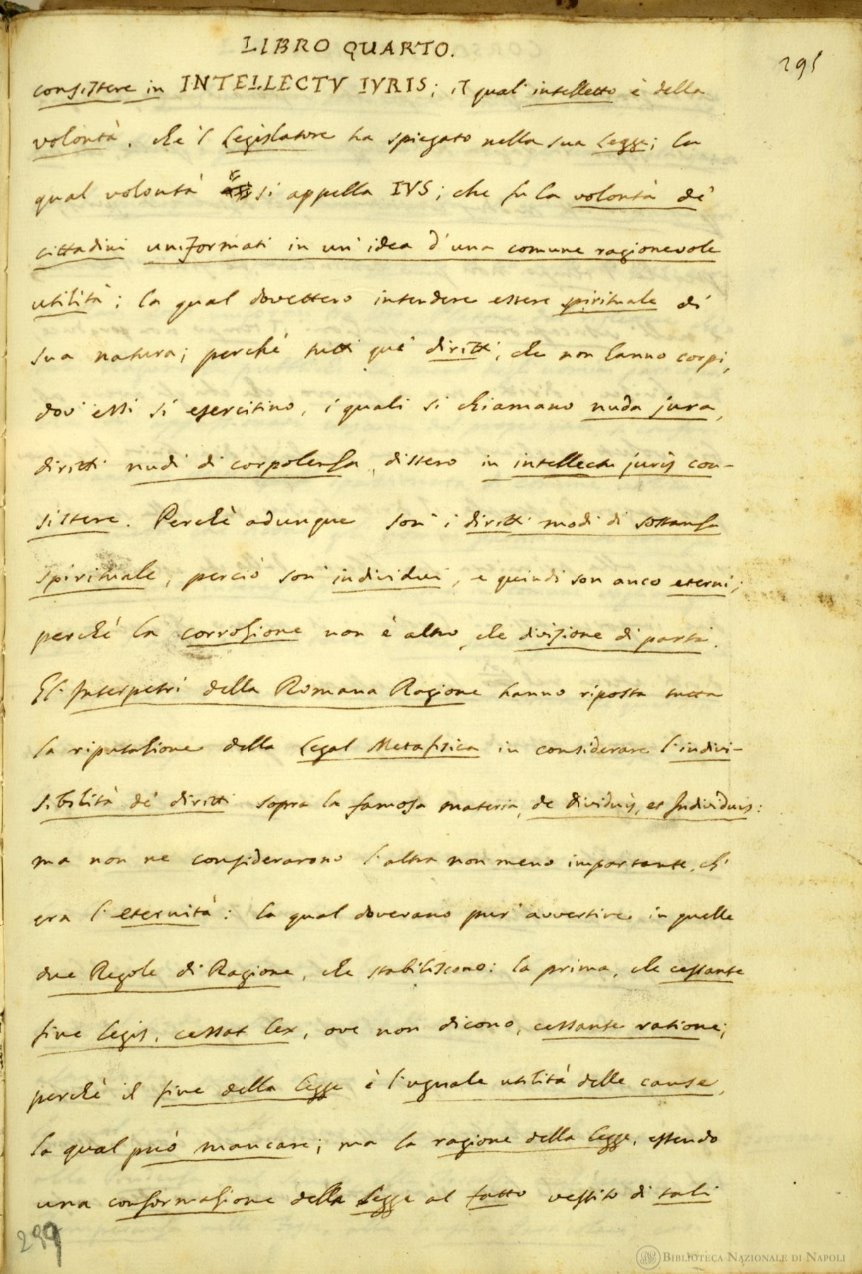 LIBRO QUARTO.
295
consistere in INTELLECTV IVRIS; il qual' intelletto è della
volontà, che 'l Legislatore ha spiegato nella sua Legge; la
qual volontà si appella IVS; che fu la volontà de'
cittadini uniformati in un' idea d'una comune ragionevole
utilità; la qual dovettero intendere essere spirituale di
sua natura; perchè tutti que' diritti, che non hanno corpi,
dov' essi si esercitino, i quali si chiamano nuda jura,
diritti nudi di corpolenza, dissero in intellectu juris con-
sistere. Perchè adunque son' i diritti modi di sostanza
spirituale, perciò son' individui, e quindi son anco eterni;
perchè la corrosione non è altro, che divisione di parti.
Gl' Interpetri della Romana Ragione hanno riposta tutta
la riputazione della Legal Metafisica in considerare l'indivi-
sibilità de' diritti sopra la famosa materia, de Dividuis, et Individuis:
ma non ne considerarono l'altra non meno importante, ch'
era l'eternità: la qual dovevano pur' avvertire in quelle
due Regole di Ragione, che stabiliscono: la prima, che cessante
fine legis, cessat lex, ove non dicono, cessante ratione;
perchè il fine della legge è l'uguale utilità delle cause,
la qual può mancare; ma la ragione della legge, essendo
una conformazione della Legge al fatto vestito di tali
299
BIBLIOTECA NAZIONALE DI NAPOLI